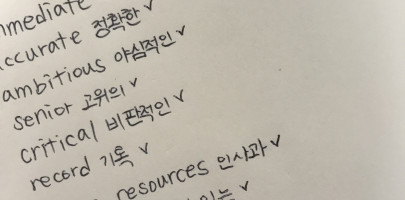 accurate 정확한 ✓
ambitious 야심적인 ✓
senior 고위의 ✓
critical 비판적인 ✓
record 기록 ✓
resources 인사과 ✓